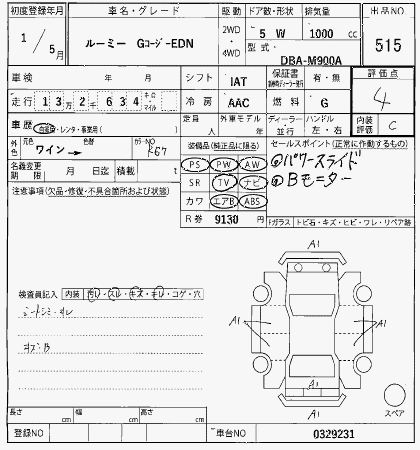 初度登録年月
1/5月
車名・グレード
ルーミー Gコージ-EDN
駆動
2WD
・
4WD
ドア数・形状
5 W
排気量
1000 cc
型式
DBA-M900A
出品NO
515
車検 年 月
シフト IAT
保証書 有・無
評価点
4
走行 13万2千634 キロ・マイル
冷房 AAC
燃料 G
内装評価 C
車歴 自家用・レンタ・事業用( )
定員 人
外車モデル 年
ディーラー・並行
ハンドル 左・右
外色 元色 ワイン→ 色
カラーNO R67
名義変更期限 月 日迄
積載 t
装備品(純正品に限る)
PS PW AW
SR TV ナビ
カワ エアB ABS
R券 9130 円
セールスポイント(正常に作動するもの)
①パワースライド
②Bモニター
注意事項(欠品・修復・不具合箇所および状態)
Fガラス トビ石・キズ・ヒビ・ワレ・リペア跡
検査員記入 内装 汚レ・スレ・キズ・キレ・コゲ・穴
シートシミ・スレ
A1
A1
A1
A1
スペア
長さ cm
幅 cm
高さ cm
登録NO
車台NO 0329231